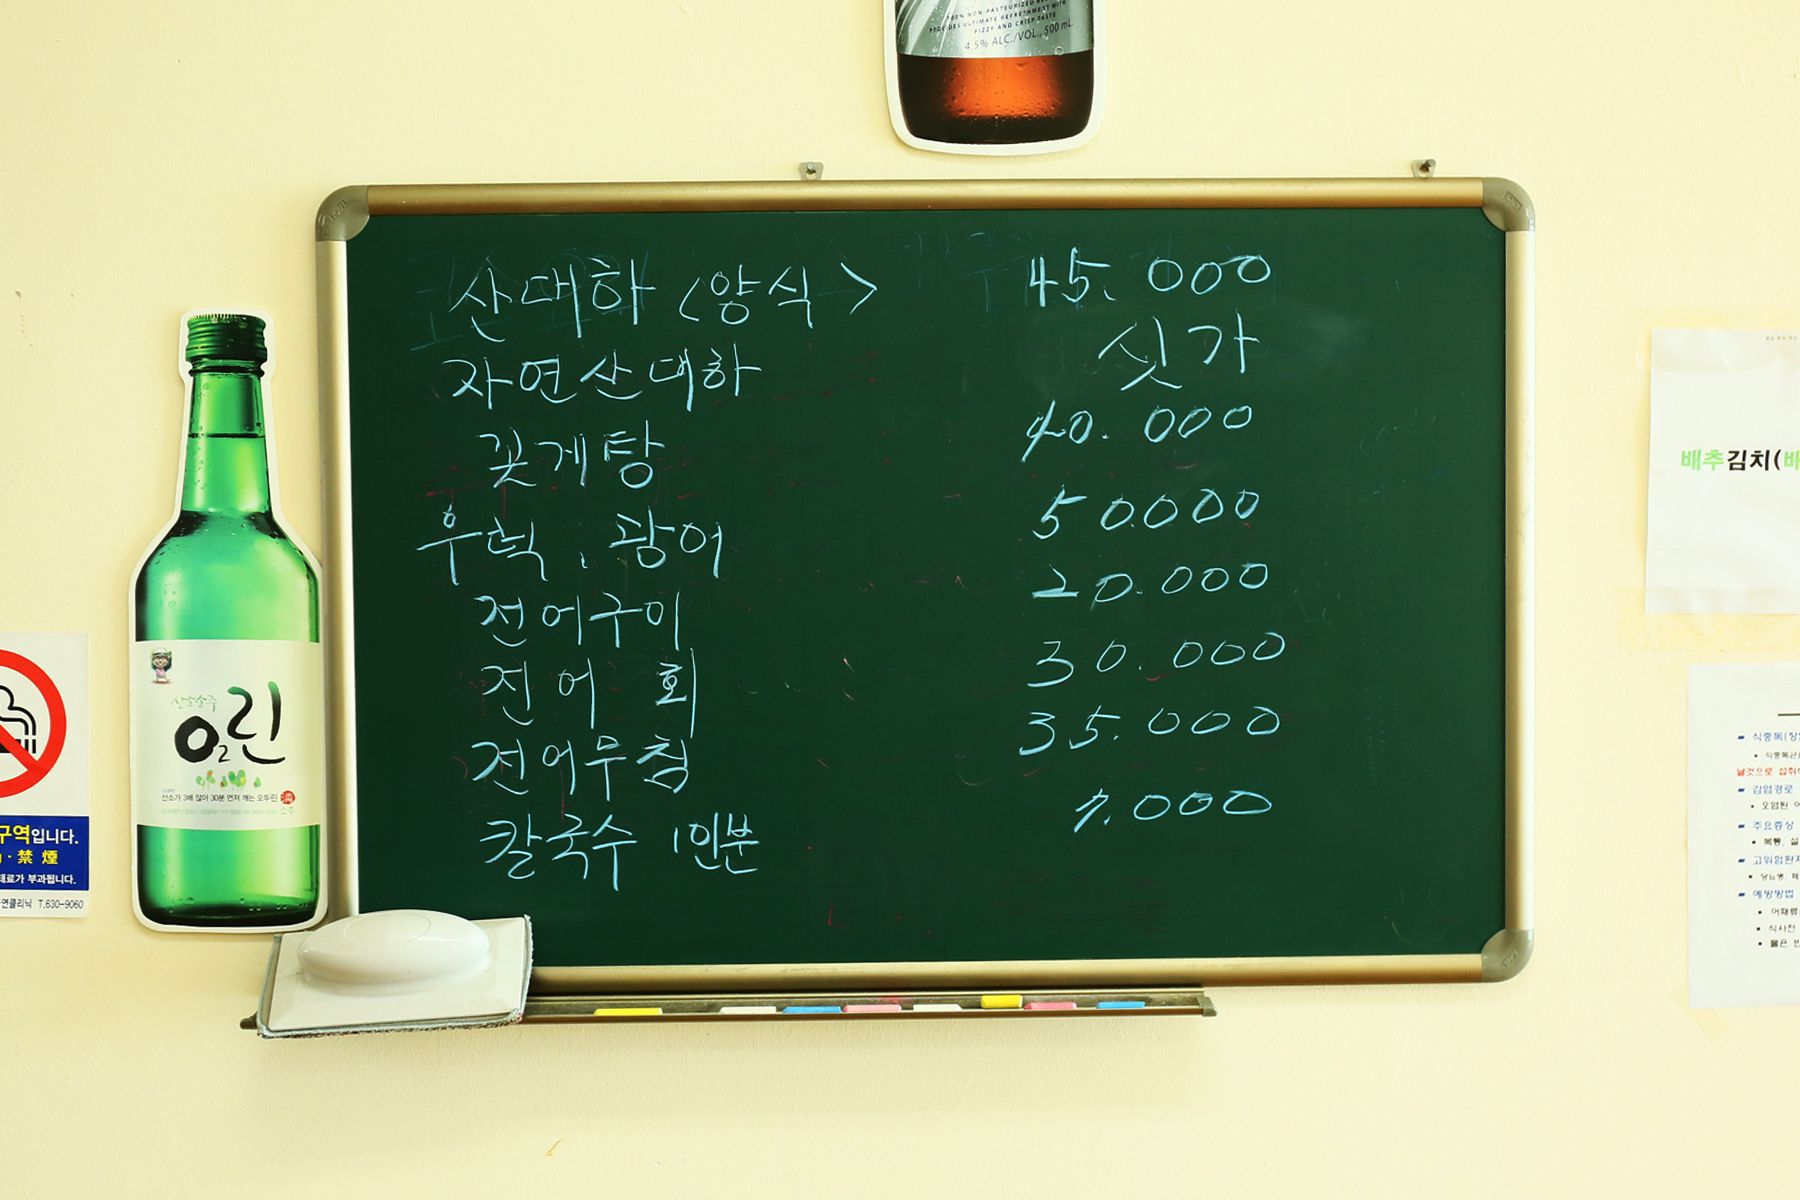 100% NON-PASTEURIZED
PROVIDES ULTIMATE REFRESHMENT WITH
FIZZY AND CRISP TASTE
4.5% ALC./VOL., 500 mL
산대하 <양식> 45.000
자연산대하 싯가
꽃게탕 40.000
우럭, 광어 50.000
전어구이 20.000
전어 회 30.000
전어무침 35.000
칼국수 1인분 7.000
산소소주
O2린
산소가 3배 많아 30분 먼저 깨는 오투린
소주
구역입니다.
禁 煙
태료가 부과됩니다.
연클리닉 T.630-9060
배추김치(배
식중독(장
날것으로 섭취
감염경로
오염된 어
주요증상
복통, 설
고위험환자
당뇨병,
예방방법
어패류
식사전